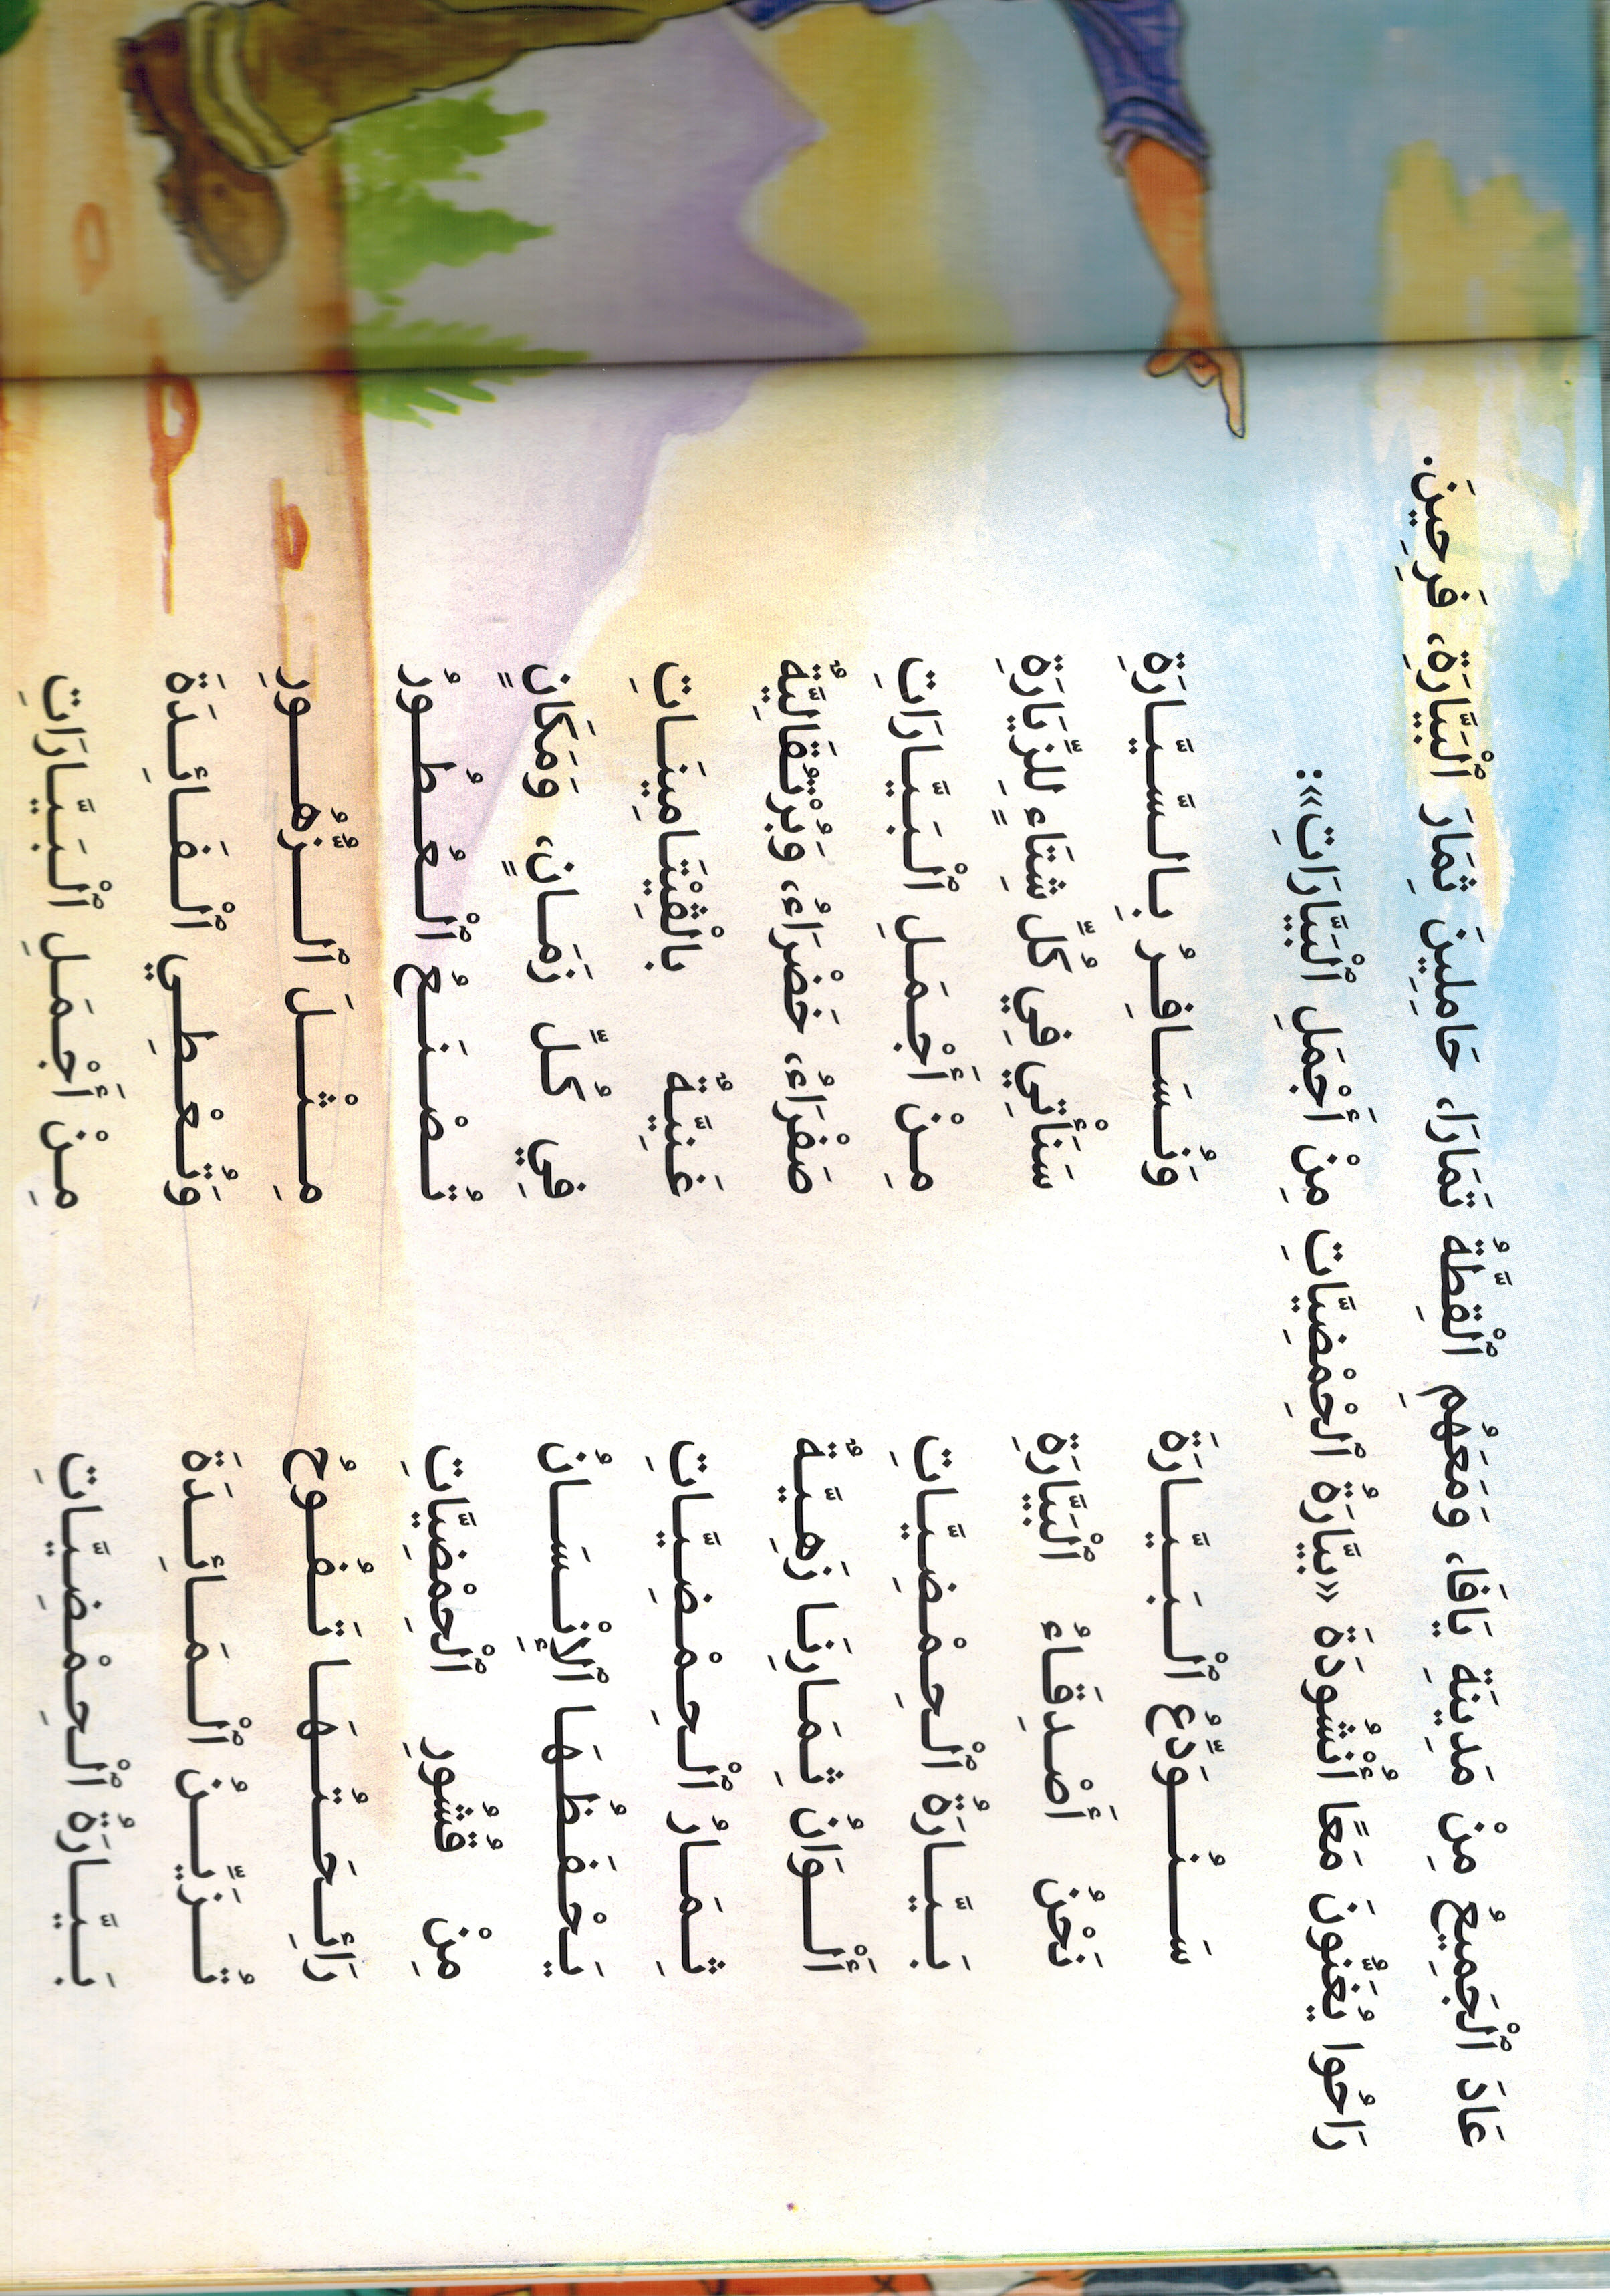 عَادَ ٱلْجَمِيعُ مِنْ مَدِينَةِ يَافَا، وَمَعَهُمِ ٱلْقِطَّةُ تَمَارَا، حَامِلِينَ ثِمَارَ ٱلْبَيَّارَةِ، فَرِحِينَ.
رَاحُوا يُغَنُّونَ مَعًا أُنْشُودَةَ «بَيَّارَةُ ٱلْحِمْضِيَّاتِ مِنْ أَجْمَلِ ٱلْبَيَّارَاتِ»:
سَنُوَدِّعُ ٱلْبَيَّارَةَ وَنُسَافِرُ بِالسَّيَّارَةِ
نَحْنُ أَصْدِقَاءُ ٱلْبَيَّارَةِ سَنَأْتِي فِي كُلِّ شِتَاءٍ لِلزِّيَارَةِ
بَيَّارَةُ ٱلْحِمْضِيَّاتِ مِنْ أَجْمَلِ ٱلْبَيَّارَاتِ
أَلْوَانُ ثِمَارِنَا زَهِيَّةٌ صَفْرَاءُ، خَضْرَاءُ، وَبُرْتُقَالِيَّةٌ
ثِمَارُ ٱلْحِمْضِيَّاتِ غَنِيَّةٌ بِالْڤِيتَامِينَاتِ
يَحْفَظُهَا ٱلْإِنْسَانُ فِي كُلِّ زَمَانٍ، وَمَكَانٍ
مِنْ قُشُورِ ٱلْحِمْضِيَّاتِ تُصْنَعُ ٱلْعُطُورُ
رَائِحَتُهَا تَفُوحُ مِثْلَ ٱلزُّهُورِ
تُزَيِّنُ ٱلْمَائِدَةَ وَتُعْطِي ٱلْفَائِدَةَ
بَيَّارَةُ ٱلْحِمْضِيَّاتِ مِنْ أَجْمَلِ ٱلْبَيَّارَاتِ